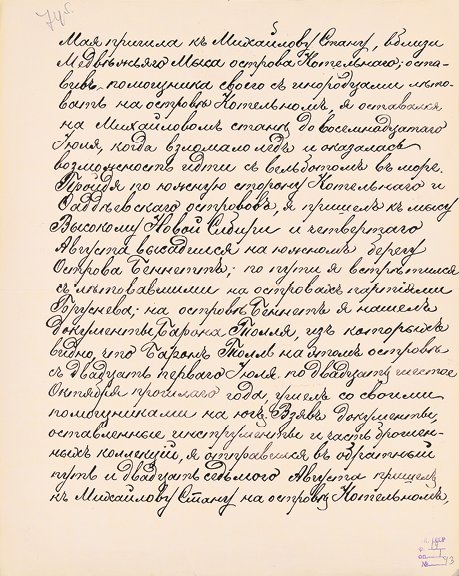 5
Мая пришла къ Михайлову Стану, вблизи
Медвѣжьяго Мыса острова Котельнаго; оста-
вивъ помощника своего съ инородцами лѣто-
вать на островѣ Котельномъ, я оставался
на Михайловомъ станѣ до восемнадцатаго
Іюля, когда взломало ледъ и оказалась
возможность идти съ вельботомъ въ море.
Пройдя по южную сторону Котельнаго и
Фаддѣевскаго острововъ, я пришелъ къ мысу
Высокому Новой Сибири и четвертаго
Августа высадился на южномъ берегу
Острова Беннеттъ; по пути я встрѣтился
съ лѣтовавшими на островахъ партіями
Бруснева; на островѣ Беннетъ я нашелъ
документы Барона Толля, изъ которыхъ
видно, что Баронъ Толль на этомъ островѣ
съ двадцать перваго Іюля по двадцать шестое
Октября прошлаго года, ушелъ со своими
помощниками на югъ. Взявъ документы,
оставленные инструменты и часть брошен-
ныхъ коллекцій, я отправился въ обратный
путь и двадцать седьмого Августа пришелъ
къ Михайлову Стану на островѣ Котельномъ,